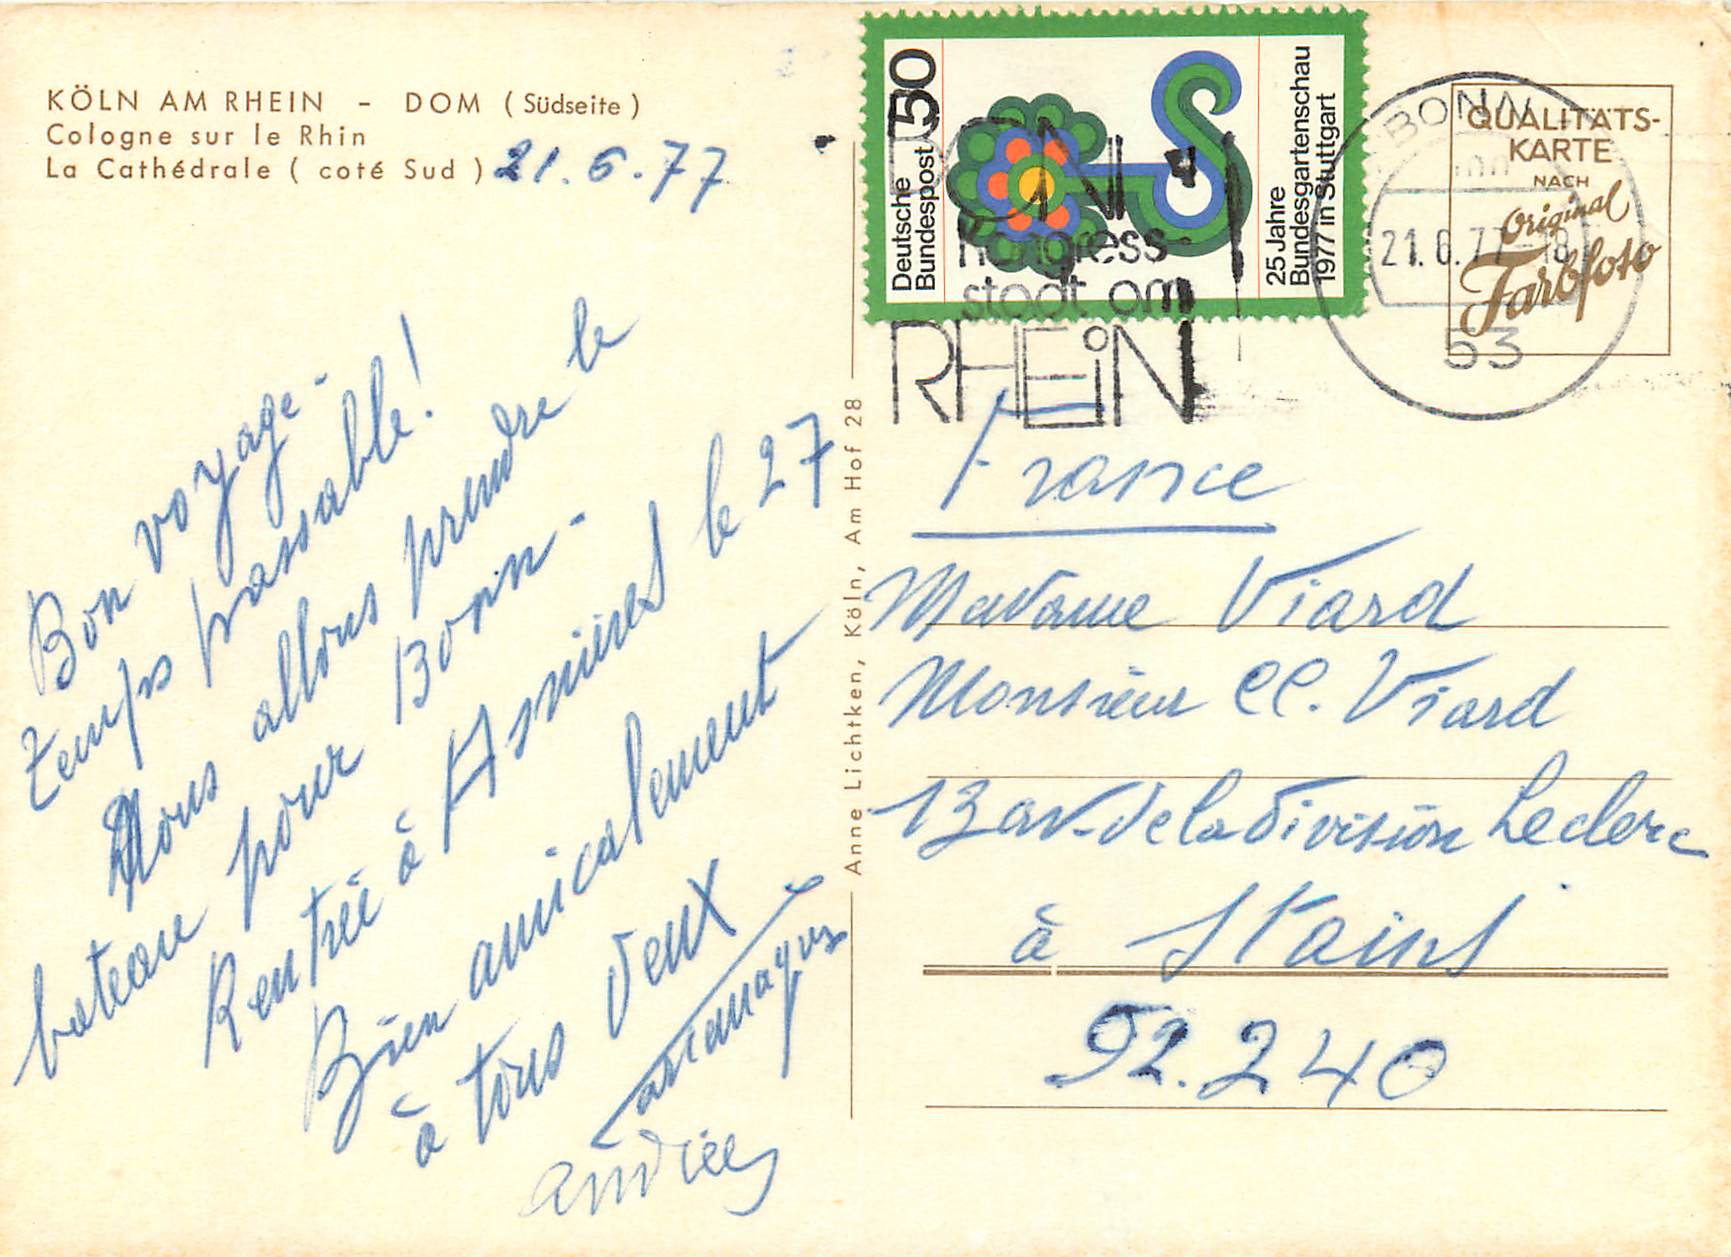 KÖLN AM RHEIN - DOM ( Südseite )
Cologne sur le Rhin
La Cathédrale ( coté Sud )
21.6.77
Bon voyage -
temps passable !
Nous allons prendre le
bateau pour Bonn -
Rentrée à Asnières le 27
Bien amicalement
à tous deux
andrée
Anne Lichtken, Köln, Am Hof 28
Deutsche
Bundespost
50
25 Jahre
Bundesgartenschau
1977 in Stuttgart
BONN
Kongress-
stadt am
RHEiN
BONN
21.6.77-18
53
QUALITÄTS-
KARTE
NACH
Original
Farbfoto
France
Madame Viard
Monsieur Cl. Viard
13 av. de la division Leclerc
à Stains
92.240